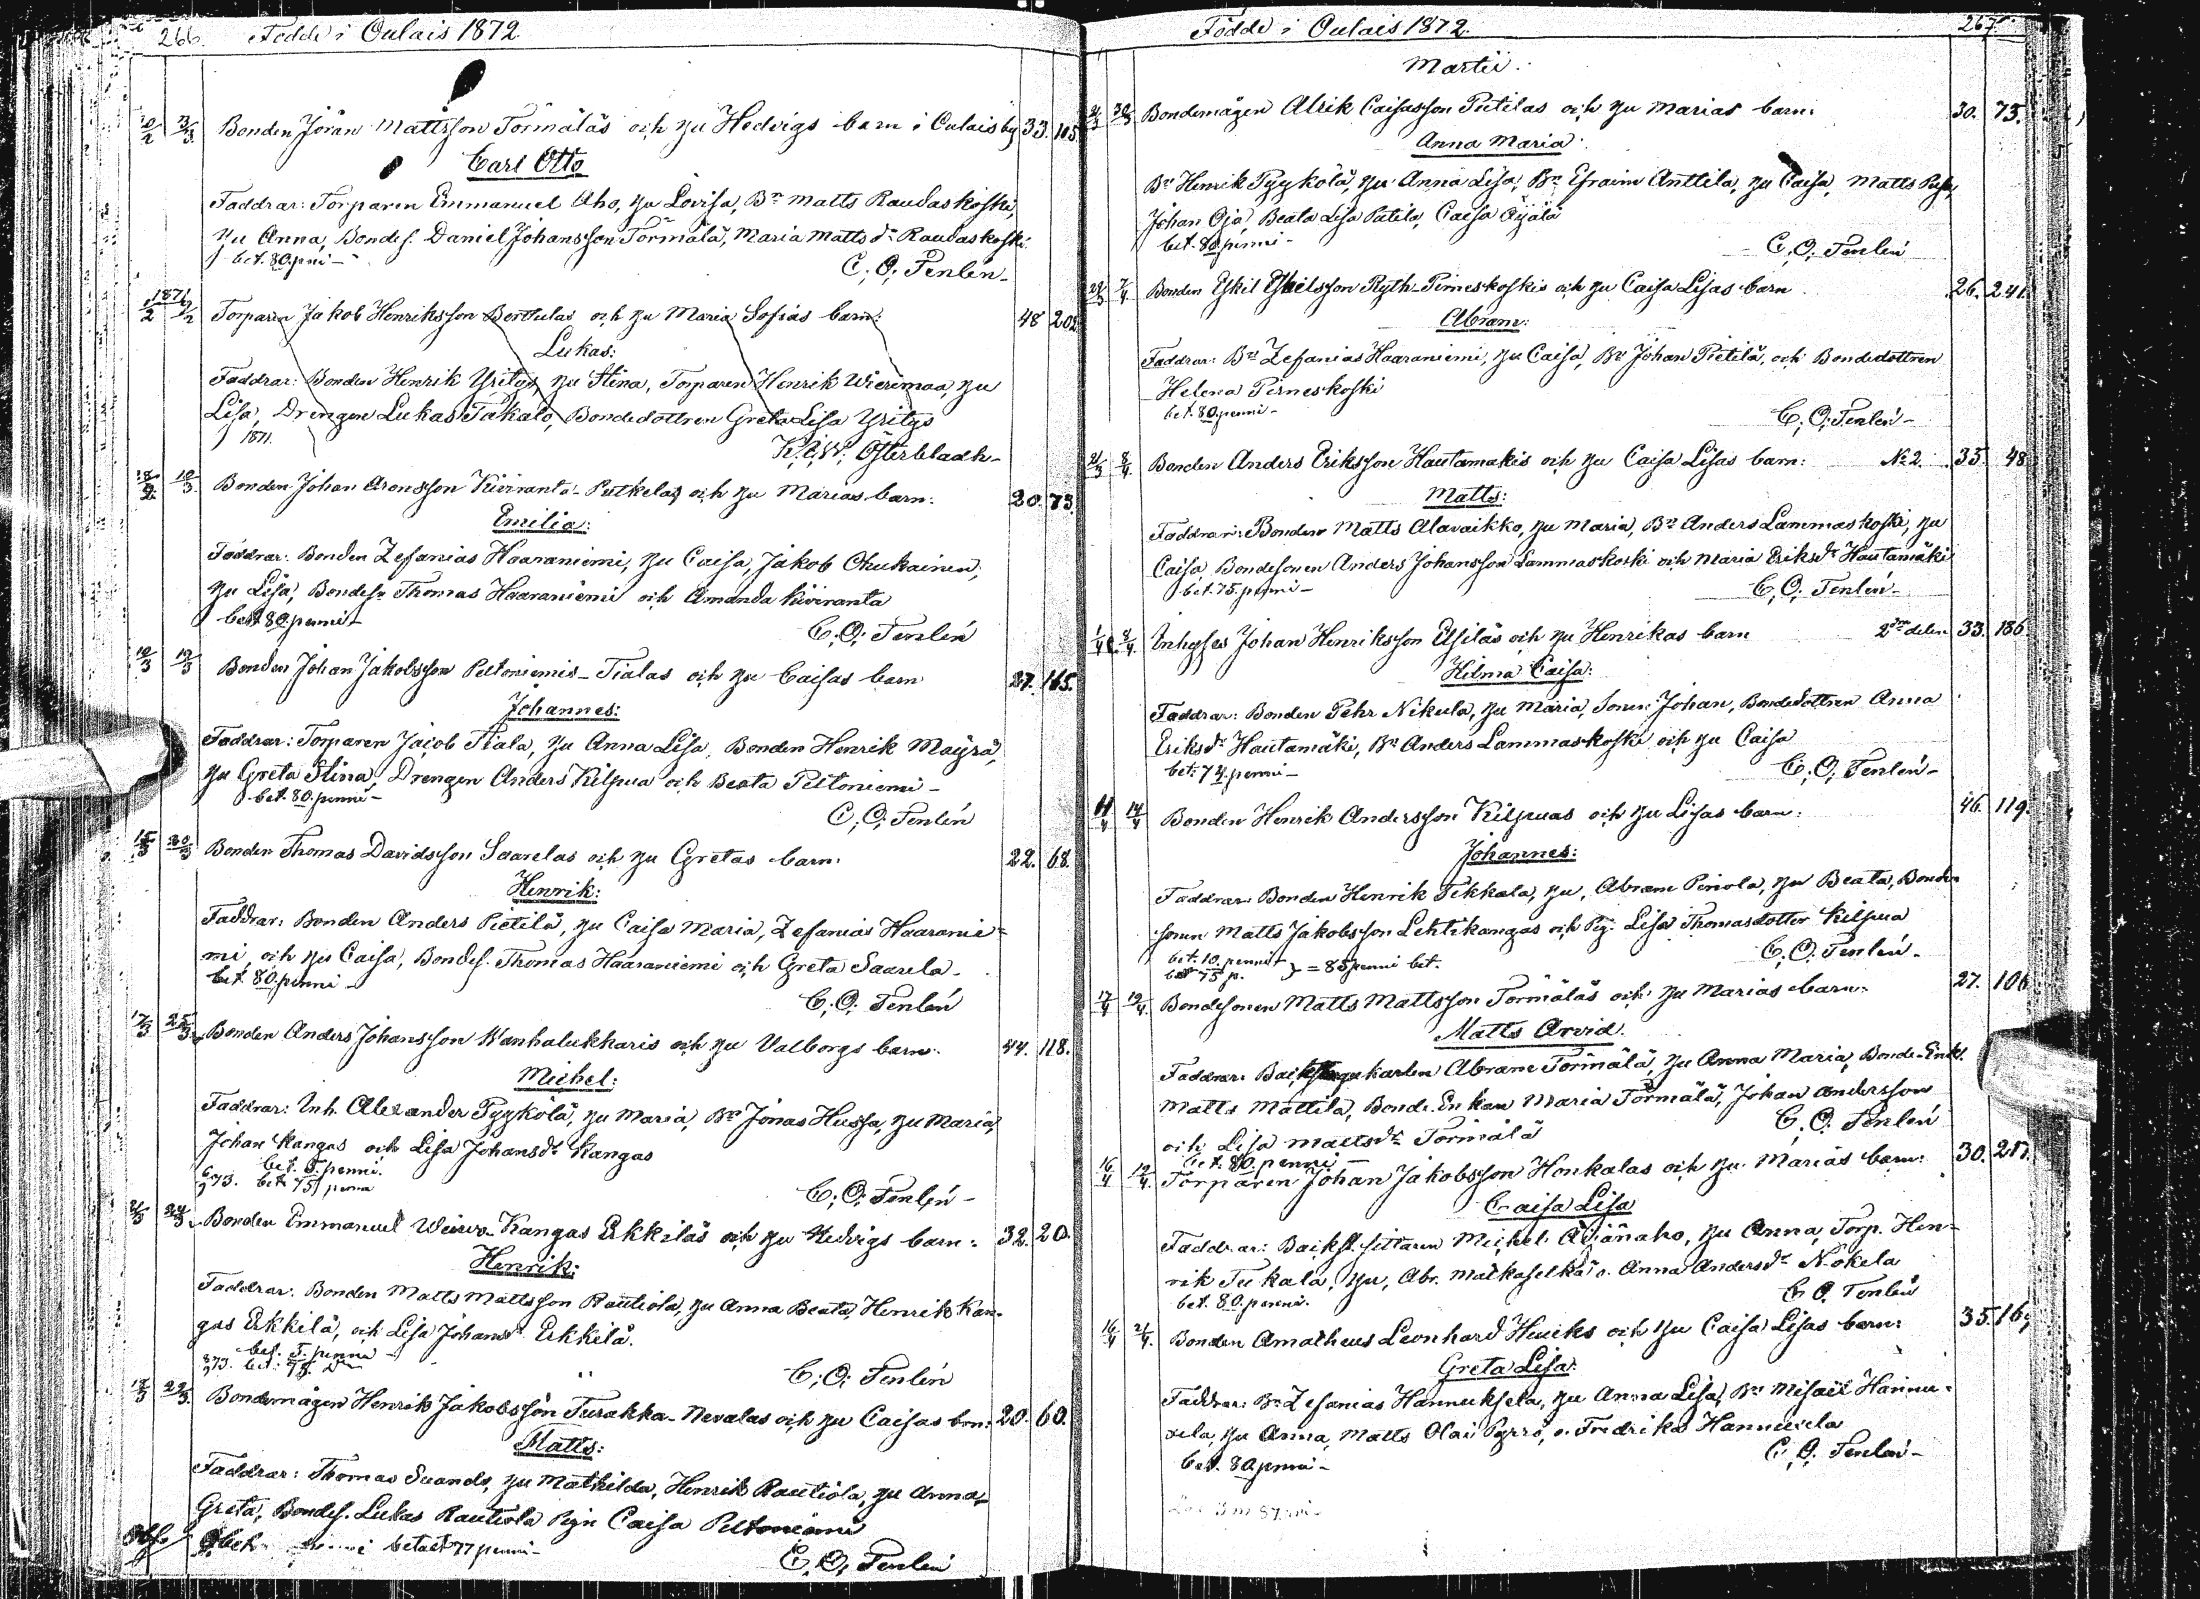 266. Födde i Oulais 1872.
Bonden Jöran Mattsson Törmäläs och hu Hedvigs barn i Oulais by 33. 105
Carl Otto
Faddrar: Torparen Emmanuel Aho, hu Lovisa, Bn Matts Raudaskoski,
hu Anna, Bondes. Daniel Johansson Törmälä, Maria Matts dr Raudaskoski
bet. 80. pni –
C. O. Fenlén –
1871
Torparen Jakob Henriksson Berttulas och hu Maria Sofias barn: 48 202
Lukas:
Faddrar: Bonden Henrik Yritys, hu Stina, Torparen Henrik Wierimaa, hu
Lisa, Drengen Lukas Takalo, Bondedottren Greta Lisa Yritys
1871.
Österbladh –
18/2 10/3 Bonden Johan Aronsson Kiviranta- och hu Marias barn: 20. 73.
Emilia:
Faddrar: Bonden Zefanias Haaraniemi, hu Caisa, Jakob Ohukainen,
hu Lisa, Bondes. Thomas Haaraniemi och Amanda Kiviranta
bet 80 penni –
C. O. Fenlén
10/3 19/3 Bonden Johan Jakobsson Peltoniemis-Tialas och hu Caisas barn 27. 165.
Johannes:
Faddrar: Torparen Jacob Tiala, hu Anna Lisa, Bonden Henrik Mäyrä,
hu Greta Stina, Drengen Anders Kilpua och Beata Peltoniemi –
bet. 80. penni –
C. O. Fenlén
15/3 20/3 Bonden Thomas Davidsson Saarelas och hu Gretas barn: 22. 68.
Henrik:
Faddrar: Bonden Anders Pietilä, hu Caisa Maria, Zefanias Haaranie=
mi, och hu Caisa, Bondes. Thomas Haaraniemi och Greta Saarela.
bet 80. penni –
C. O. Fenlén
17/3 25/3 Bonden Anders Johansson Wanhalukkaris och hu Valborgs barn: 44. 118.
Michel:
Faddrar: Inh. Alexander Pyykölä, hu Maria, Bn Jonas Hussa, hu Maria,
Johan Kangas och Lisa Johansdr Kangas
bet. 5. penni.
73. bet. 75 penni
C. O. Fenlén –
Bonden Emmanuel Kangas Erkkiläs och hu Hedvigs barn: 32. 20.
Henrik:
Faddrar: Bonden Matts Mattsson Rautiola, hu Anna Beata, Henrik Kan-
gas Erkkilä, och Lisa Johansdr Erkkilä.
bet. 5. penni
73. bet.
C. O. Fenlén
Bondemågen Henrik Jakobsson Turakka-Nevalas och hu Caisas brn: 20. 60.
Matts:
Faddrar: Thomas Suands, hu Mathilda, Henrik Rautiola, hu Anna
Greta, Bondes. Lukas Rautiola Pign Caisa Peltoniemi
betalt 77 penni –
C. O. Fenlén
Födde i Oulais 1872. 267.
Martii:
Bondemågen Alrik Caisasson Pietilas och hu Marias barn: 30. 75.
Anna Maria
Bn Henrik Pyykölä, hu Anna Lisa, Bn Efraim Anttila, hu Caisa, Matts
Johan Oja, Beata Lisa Patila, Caisa Äijälä
bet. 80 penni –
C. O. Fenlén
Bonden Eskil Eskilsson Ryth-Pirneskoskis och hu Caisa Lisas barn 26. 241
Abram:
Faddrar: Bn Zefanias Haaraniemi, hu Caisa, Bn Johan Pietilä, och Bondedottren
Helena Pirneskoski
bet. 80. penni –
C. O. Fenlén –
21/3 8/4 Bonden Anders Eriksson Hautamäkis och hu Caisa Lisas barn: No 2. 35. 48
Matts:
Faddrar: Bonden Matts Alavaikko, hu Maria, Bn Anders Lammaskoski, hu
Caisa Bondesonen Anders Johansson Lammaskoski och Maria Eriksdr Hautamäki
bet. 75. penni –
C. O. Fenlén –
1/4 8/4 Inhyses Johan Henriksson Elsiläs och hu Henrikas barn 2dra delen 33. 186
Hilma Caisa:
Faddrar: Bonden Pehr Nikula, hu Maria, Sonen Johan, Bondedottren Anna
Eriksdr Hautamäki, Bn Anders Lammaskoski och hu Caisa
bet. 74. penni –
C. O. Fenlén –
11/4 14/4 Bonden Henrik Andersson Kilpuas och hu Lisas barn: 46. 119.
Johannes:
Faddrar: Bonden Henrik Tikkala, hu, Abram Pinola, hu Beata, Bonde-
sonen Matts Jakobsson Lehtikangas och Pig. Lisa Thomasdotter Kilpua
bet. 10. penni
bet 75 p. } = 85 penni bet.
C. O. Fenlén –
17/4 19/4 Bondesonen Matts Mattsson Törmäläs och hu Marias barn: 27. 106
Matts Arvid.
Faddrar: karlen Abram Törmälä, hu Anna Maria, Bonde-Enkl.
Matts Mattila, Bonde-Enkan Maria Törmälä, Johan Andersson
och Lisa Mattsdr Törmälä
C. O. Fenlén
bet. 80. penni –
16/4 19/4 Torparen Johan Jakobsson Honkalas och hu Marias barn: 30. 217.
Caisa Lisa
Faddrar: Backst.sittaren Michel Äijänaho, hu Anna, Torp. Hen-
rik Tukala, hu, Abr. Matkaselkä o. Anna Andersdr Nokela
bet. 80. penni.
C. O. Fenlén
Bonden Amatheus Leonhard Huiks och hu Caisa Lisas barn: 35. 16
Greta Lisa:
Faddrar: Bn Zefanias Hannuksela, hu Anna Lisa, Bn Misael Hannu-
xela, hu Anna, Matts Olai Pyrrö, o. Fredrika Hannuxela
bet. 80 penni –
C. O. Fenlén –